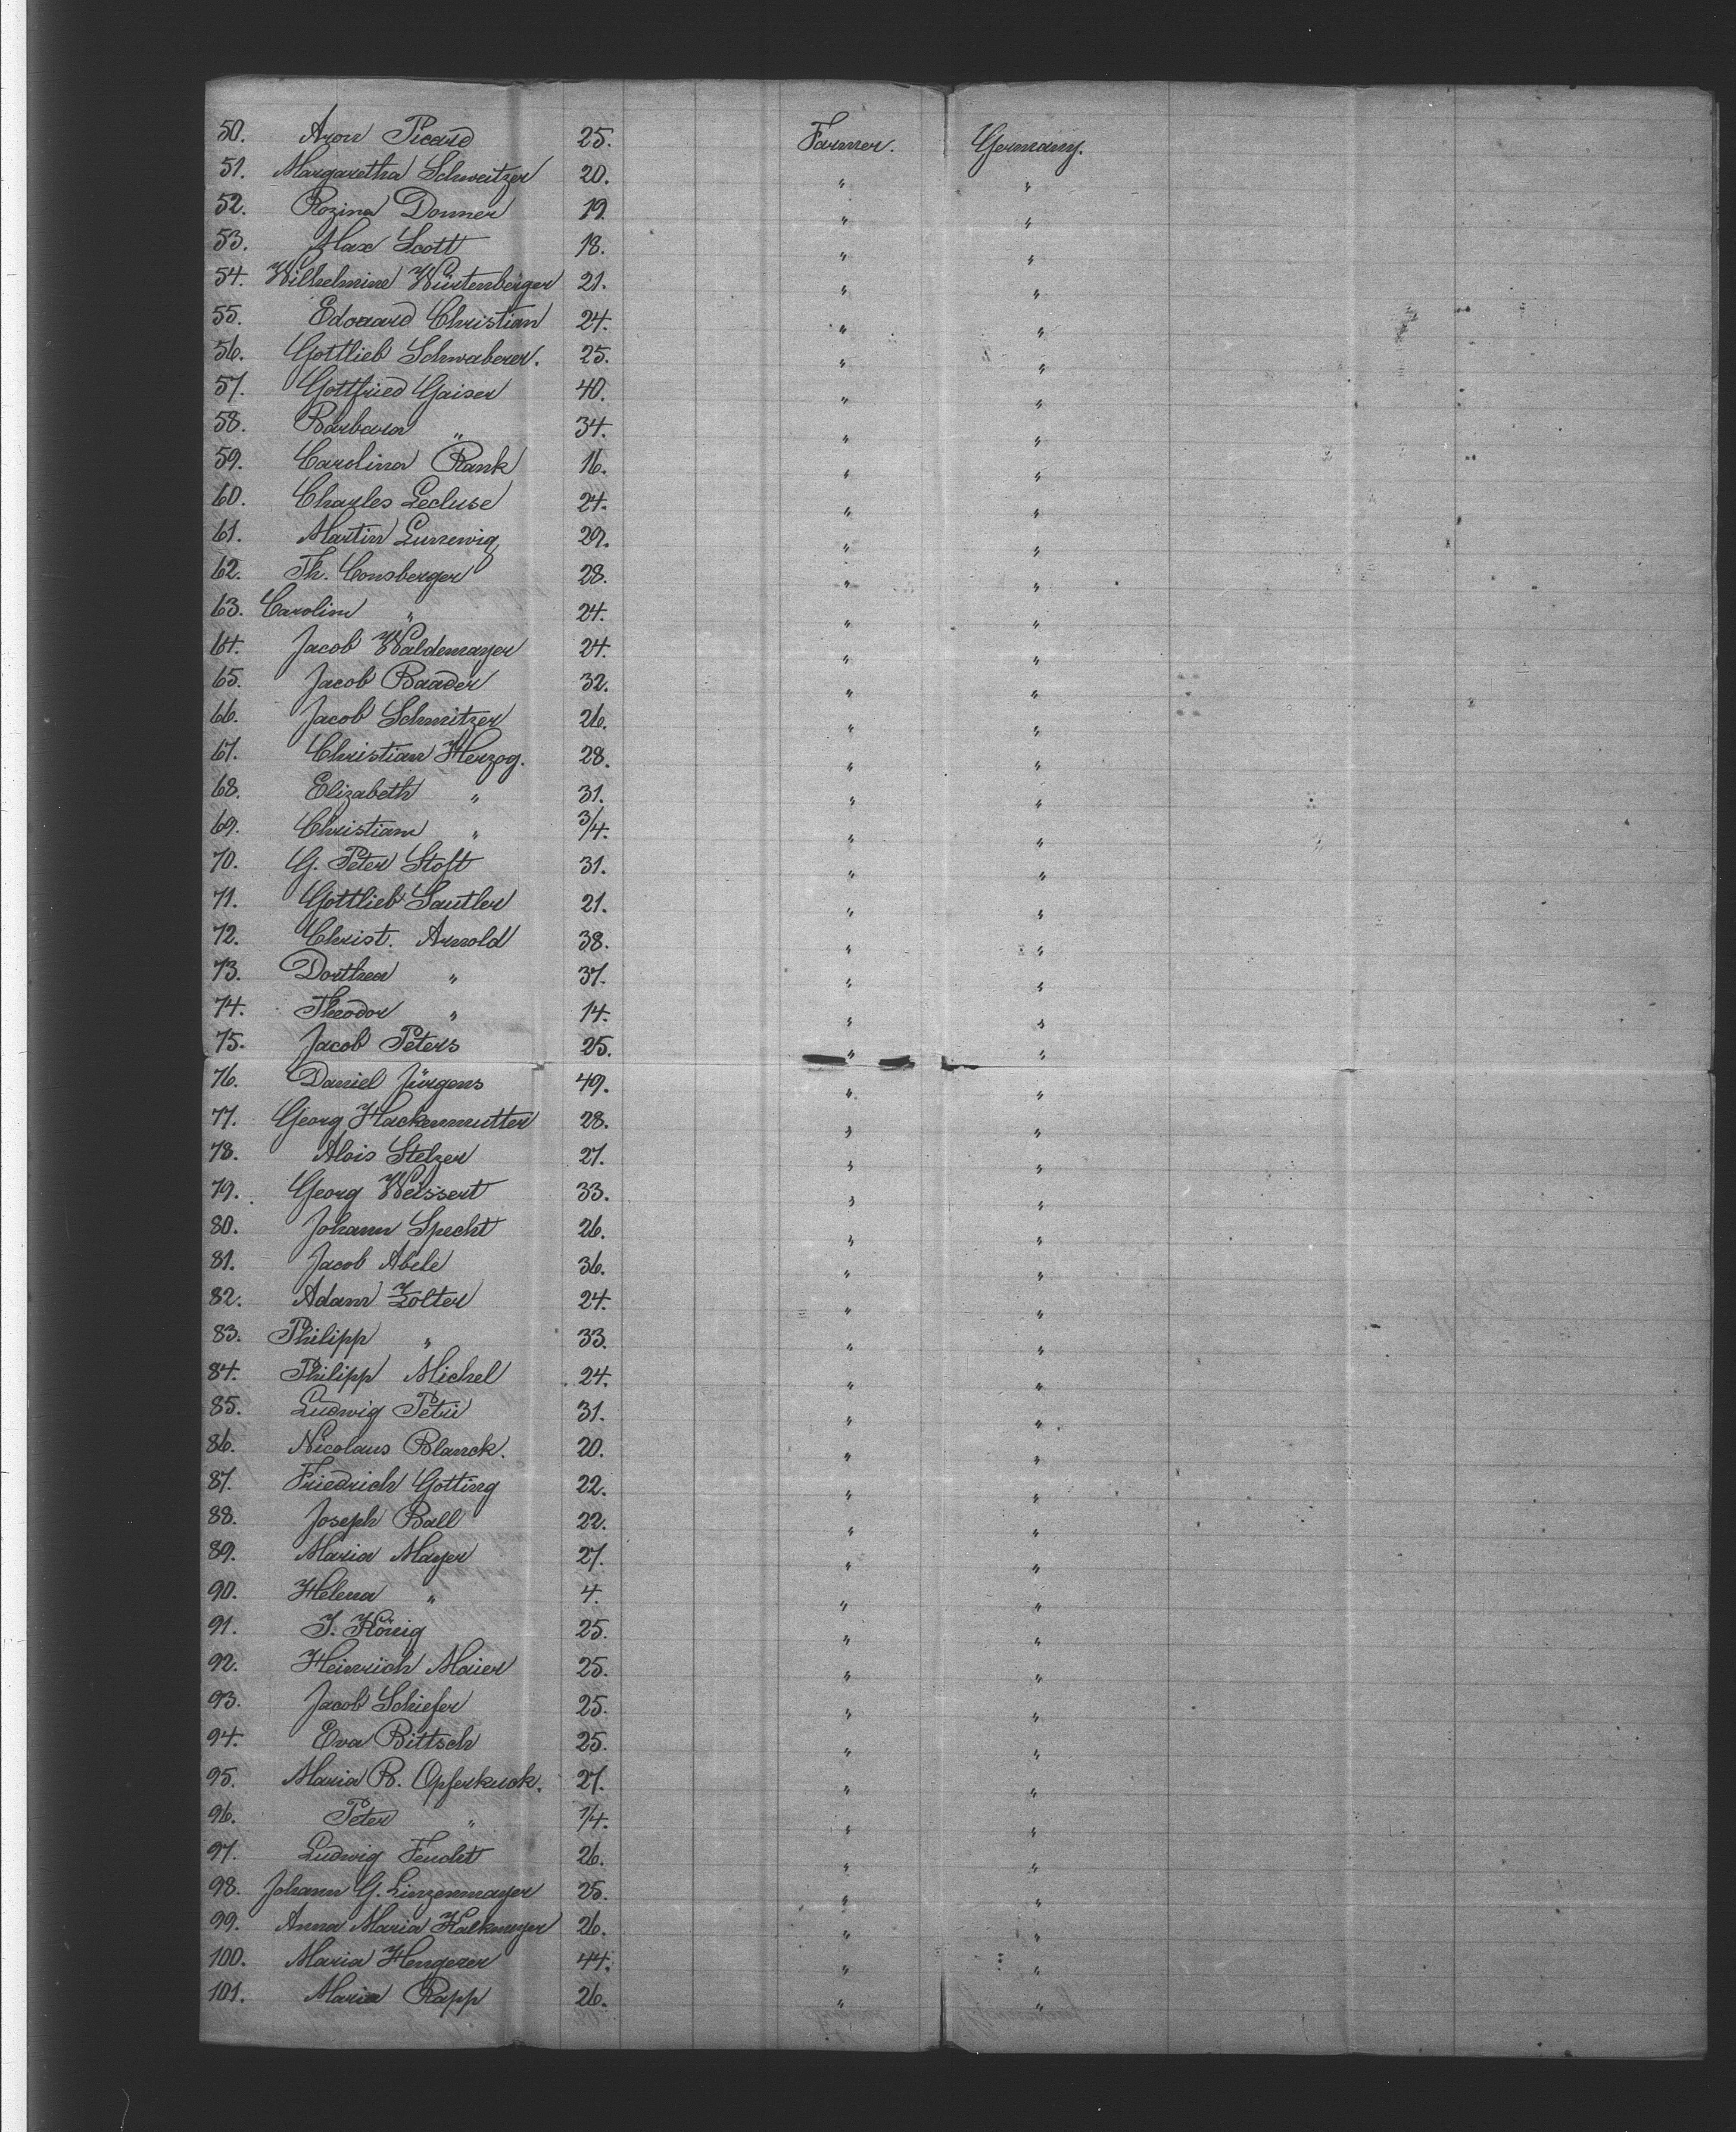 50. Aron Picard 25. Farmer. Germany.
51. Margaretha Schweitzer 20. " "
52. Rozina Donner 19. " "
53. Max Scott 18. " "
54. Wilhelmine Würtenberger 21. " "
55. Edouard Christian 24. " "
56. Gottlieb Schwaberer. 25. " "
57. Gottfried Gaiser 40. " "
58. Barbara " 34. " "
59. Carolina Rank 16. " "
60. Charles Lecluse 24. " "
61. Martin 29. " "
62. Th. Consberger 28. " "
63. Carolin " 24. " "
64. Jacob Waldemayer 24. " "
65. Jacob Baader 32. " "
66. Jacob Schmitzer 26. " "
67. Christian Herzog. 28. " "
68. Elizabeth " 31. " "
69. Christian " 3/4. " "
70. G. Peter Stoft 31. " "
71. Gottlieb Sautler 21. " "
72. Christ. Arnold 38. " "
73. Dorthea " 37. " "
74. Theodor " 14. " "
75. Jacob Peters 25. " "
76. Daniel Jürgens 49. " "
77. Georg Hackenmutter 28. " "
78. Alois Stelzer 27. " "
79. Georg Weissert 33. " "
80. Johann Specht 26. " "
81. Jacob Abele 36. " "
82. Adam Zolter 24. " "
83. Philipp " 33. " "
84. Philipp Michel 24. " "
85. Ludwig Petri 31. " "
86. Nicolaus Blanck. 20. " "
87. Friedrich Gotting 22. " "
88. Joseph Ball 22. " "
89. Maria Mayer 27. " "
90. Helena " 4. " "
91. J. König 25. " "
92. Heinrich Maier 25. " "
93. Jacob Schiefer 25. " "
94. Eva Bittsch 25. " "
95. Maria B. Opferkuck. 27. " "
96. Peter " 1/4. " "
97. Ludwig Feucht 26. " "
98. Johann G. Linzenmayer 25. " "
99. Anna Maria Kalkmeyer 26. " "
100. Maria Hengerer 44. " "
101. Maria Rapp 26. " "